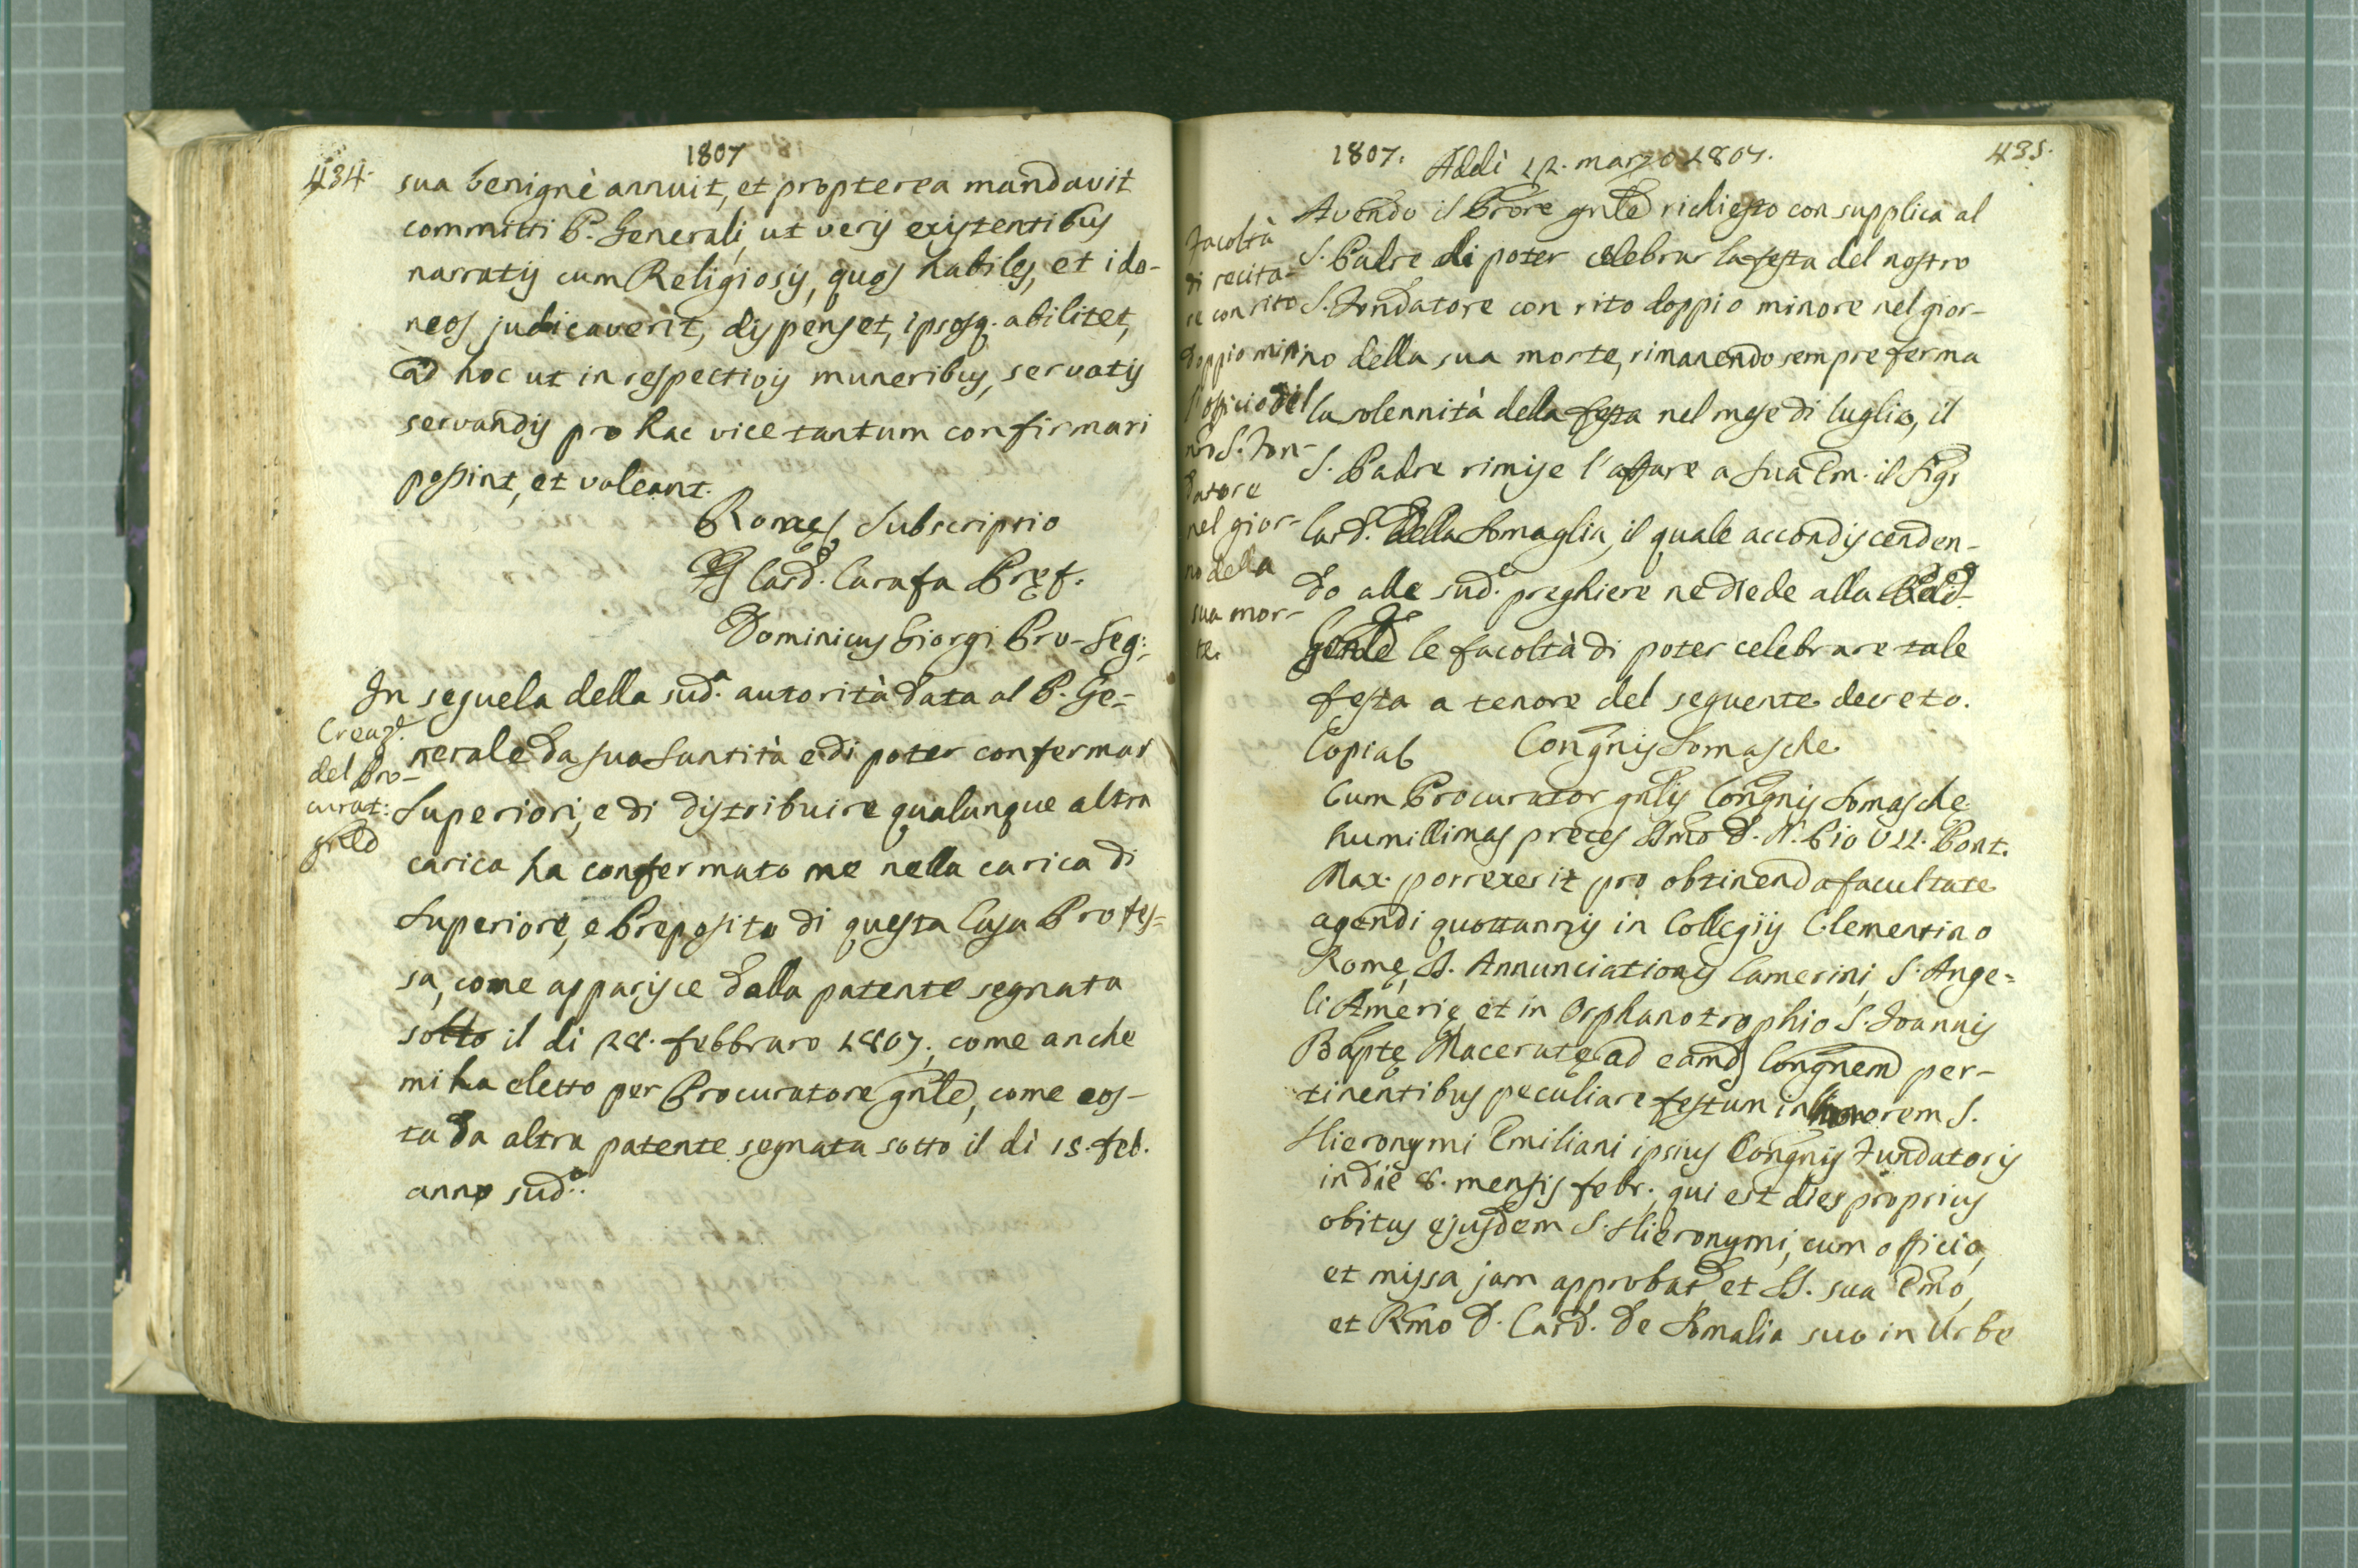 1807
434.
sua benignè annuit, et propterea mandavit
committi P. Generali, ut veris existentibus
narratis cum Religiosis, quos habiles, et ido-
neos judicaverit, dispenset, ipsosq. abilitet,
ad hoc ut in respectivis muneribus, servatis
servandis pro hac vice tantum confirmari
possint, et valeant.
Romæ Subscriptio
Card. Carafa Pręf.
Dominicus Giorgi Pro-Seg:
In seguela della sud.a autorità data al P. Ge-
nerale da sua Santità e di poter confermar
Superiori, e di distribuire qualunque altra
carica ha confermato me nella carica di
Superiore, e Preposito di questa Casa Profes-
sa, come apparisce dalla patente segnata
sotto il dì 28. febbraro 1807., come anche
mi ha eletto per Procuratore gnle, come cos-
ta da altra patente segnata sotto il dì 15. feb.
anno sud.o.
Creaz.e
del Pro-
curat:
gnle
1807.
Addì 12. marzo 1807.
435.
Avendo il Prore gnle richiesto con supplica al
S. Padre di poter celebrar la festa del nostro
S. Fondatore con rito doppio minore nel gior-
no della sua morte, rimanendo sempre ferma
la solennità della festa nel mese di luglio, il
S. Padre rimise l'affare a Sua Em. il Sigr
Card. Della Somaglia, il quale accondiscenden-
do alle sud.e preghiere ne diede alla
le facoltà di poter celebrare tale
festa a tenore del seguente decreto.
Copia
Congnis Somasche
Cum Procurator gnlis Congnis Somasche
humillimas preces SSmo D. N. Pio VII. Pont.
Max. porrexerit pro obtinenda facultate
agendi quottannis in Collegiis Clementino
Romę, SS. Annunciationis Camerini, S. Ange-
li Amerię et in Orphanotrophio S. Joannis
Baptę Maceratę ad eamd Congnem per-
tinentibus peculiare festum in honorem S.
Hieronymi Emiliani ipsius Congnis Fundatoris
in die 8. mensis febr., qui est dies proprius
obitus ejusdem S. Hieronymi, cum officio,
et missa jam approbat, et SS. sua Emo,
et Rmo D. Card. De Somalia suo in Urbe
Facoltà
di recita-
re con rito
doppio min.
l'officio del
nro S. Fon-
datore
nel gior-
no della
sua mor-
te.